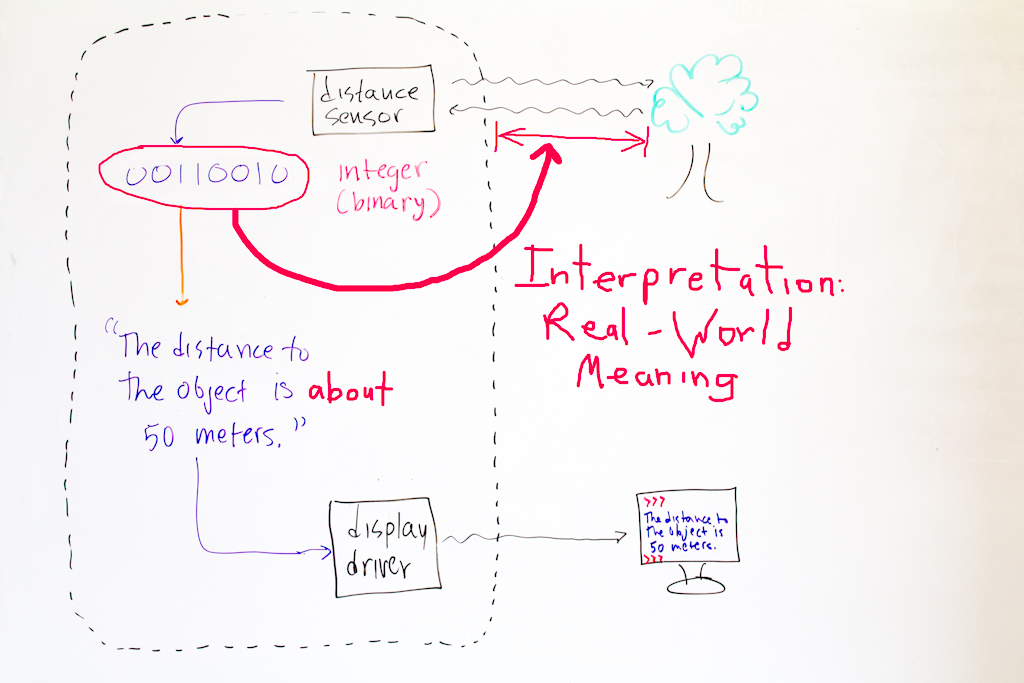 distance
sensor
00110010
integer
(binary)
Interpretation:
Real-World
Meaning
"The distance to
the object is about
50 meters."
display
driver
>>>
The distance to
the object is
50 meters.
>>>